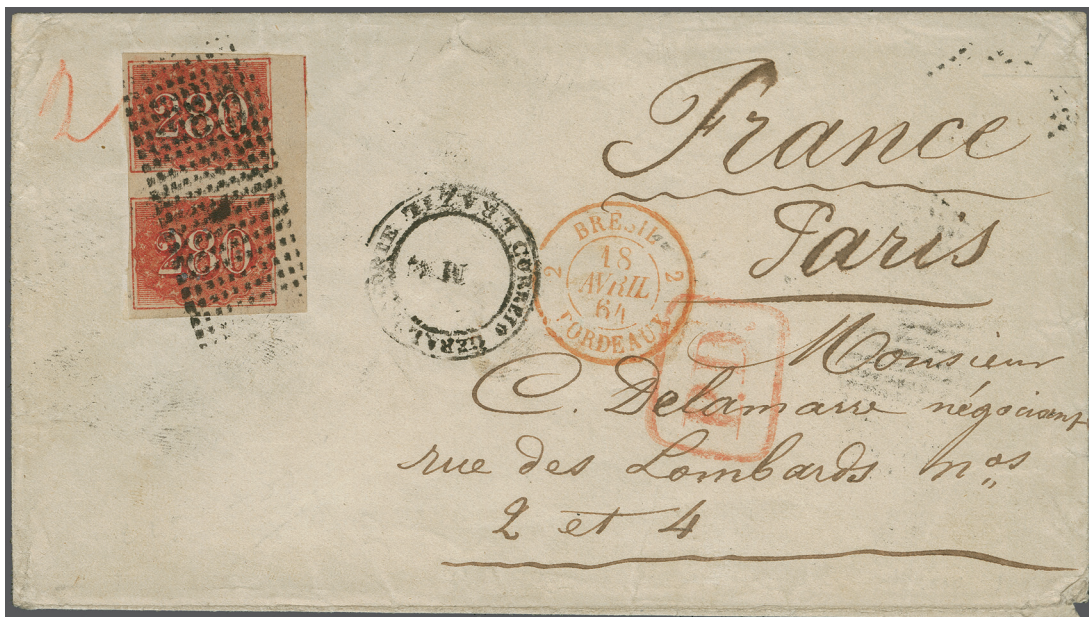 2
280
280
CORREIO GERAL
BRÉSIL
2 2
18
AVRIL
64
BORDEAUX
P.D.
France
Paris
Monsieur
C. Delamarre négociant
rue des Lombards nos
2 et 4